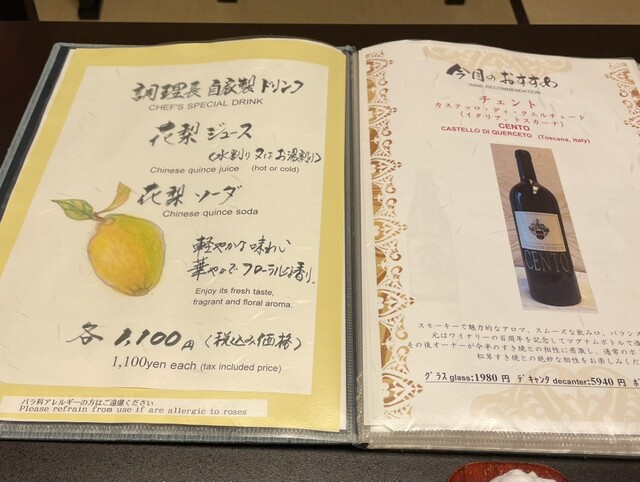 調理長 自家製 ドリンク
CHEF'S SPECIAL DRINK
花梨 ジュース
(水割り 又は お湯割)
Chinese quince juice (hot or cold)
花梨 ソーダ
Chinese quince soda
軽やかな味わい
華やかで フローラルな香り。
Enjoy its fresh taste,
fragrant and floral aroma.
各 1,100円 (税込み価格)
1,100yen each (tax included price)
バラ科アレルギーの方はご遠慮ください
Please refrain from use if are allergic to roses
今月のおすすめ
WINE RECOMMENDATION
チェント
カステッロ・ディ・クエルチェード
(イタリア・トスカーナ)
CENTO
CASTELLO DI QUERCETO (Toscana, Italy)
CENTO
スモーキーで魅力的なアロマ、スムーズな飲み口、バラン
元はワイナリーの百周年を記念してマグナムボトルで造
その後オーナーが今半のすき焼との相性に感激し、通常のボ
松茸すき焼との絶妙な相性をお楽しみくだ
グラス glass:1980 円 デキャンタ decanter:5940 円 ボ